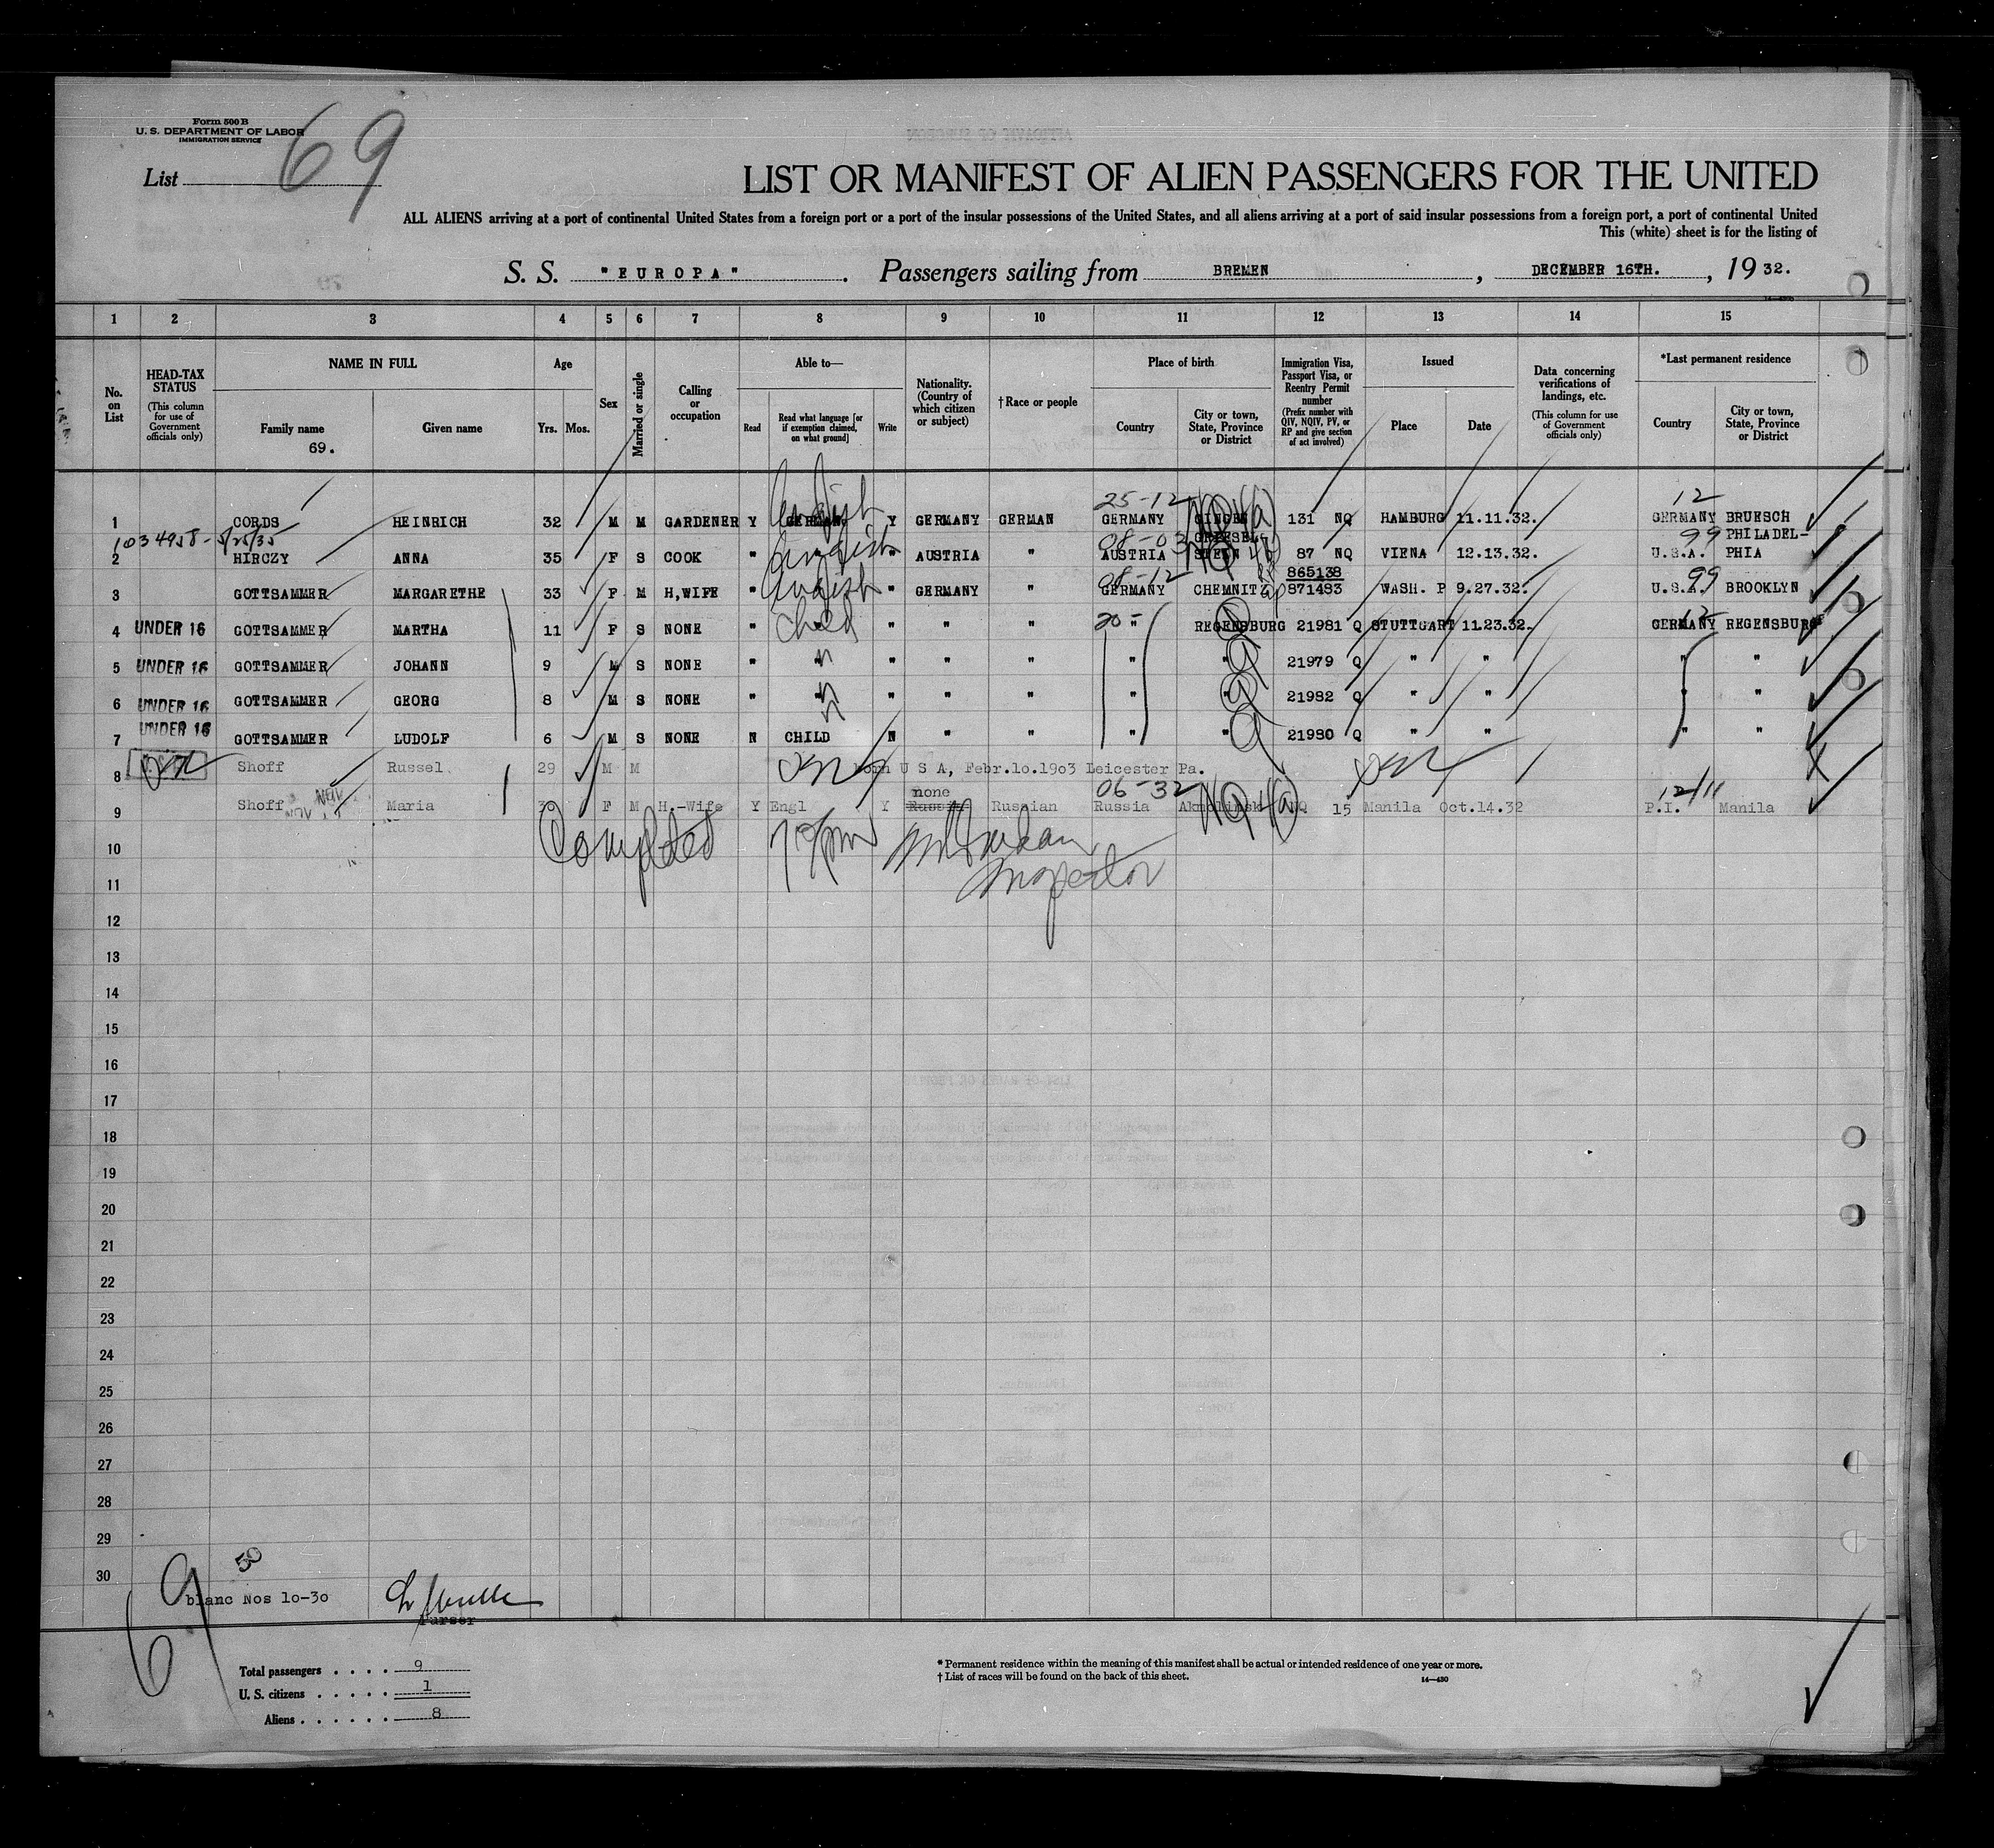 Form 500 B
U. S. DEPARTMENT OF LABOR
IMMIGRATION SERVICE
List 69
LIST OR MANIFEST OF ALIEN PASSENGERS FOR THE UNITED
ALL ALIENS arriving at a port of continental United States from a foreign port or a port of the insular possessions of the United States, and all aliens arriving at a port of said insular possessions from a foreign port, a port of continental United
This (white) sheet is for the listing of
S. S. "EUROPA". Passengers sailing from BREMEN, DECEMBER 16TH., 1932.
1 2 3 4 5 6 7 8 9 10 11 12 13 14 15
No. on List
HEAD-TAX STATUS (This column for use of Government officials only)
NAME IN FULL
Family name Given name
69.
Age
Yrs. Mos.
Sex
Married or single
Calling or occupation
Able to—
Read
Read what language [or if exemption claimed, on what ground]
Write
Nationality. (Country of which citizen or subject)
† Race or people
Place of birth
Country
City or town, State, Province or District
Immigration Visa, Passport Visa, or Reentry Permit number (Prefix number with QIV, NQIV, PV, or RP and give section of act involved)
Issued
Place Date
Data concerning verifications of landings, etc. (This column for use of Government officials only)
*Last permanent residence
Country
City or town, State, Province or District
25-12 12
1 CORDS HEINRICH 32 M M GARDENER Y GERMAN English Y GERMANY GERMAN GERMANY 131 NQ HAMBURG 11.11.32. GERMANY BRUESCH
1034958 - 5/25/35 08-03 99 PHILADEL-
2 HIRCZY ANNA 35 F S COOK " English " AUSTRIA " AUSTRIA 87 NQ VIENA 12.13.32. U.S.A. PHIA
08-12 865138 99
3 GOTTSAMMER MARGARETHE 33 F M H,WIFE " English " GERMANY " GERMANY CHEMNITZ 871493 WASH. P 9.27.32. U.S.A. BROOKLYN
4 UNDER 16 GOTTSAMMER MARTHA 11 F S NONE " child " " " 20- " REGENSBURG 21981 Q STUTTGART 11.23.32. 12 GERMANY REGENSBURG
5 UNDER 16 GOTTSAMMER JOHANN 9 M S NONE " " " " " " " 21979 Q " " " "
6 UNDER 16 GOTTSAMMER GEORG 8 M S NONE " " " " " " " 21982 Q " " " "
7 UNDER 16 GOTTSAMMER LUDOLF 6 M S NONE N CHILD N " " " " 21980 Q " " " "
8 Shoff Russel 29 M M born U S A, Febr.10.1903 Leicester Pa.
none 06-32 12/11
9 Shoff Maria F M H.-Wife Y Engl Y Russia Russian Russia Akmolinsk NQ 15 Manila Oct.14.32 P.I. Manila
10 Completed
11 Inspector
12
13
14
15
16
17
18
19
20
21
22
23
24
25
26
27
28
29
30
50
blanc Nos 10-30
Purser
69
Total passengers . . . . 9
U. S. citizens . . . . . 1
Aliens . . . . . . 8
* Permanent residence within the meaning of this manifest shall be actual or intended residence of one year or more.
† List of races will be found on the back of this sheet.
14—430